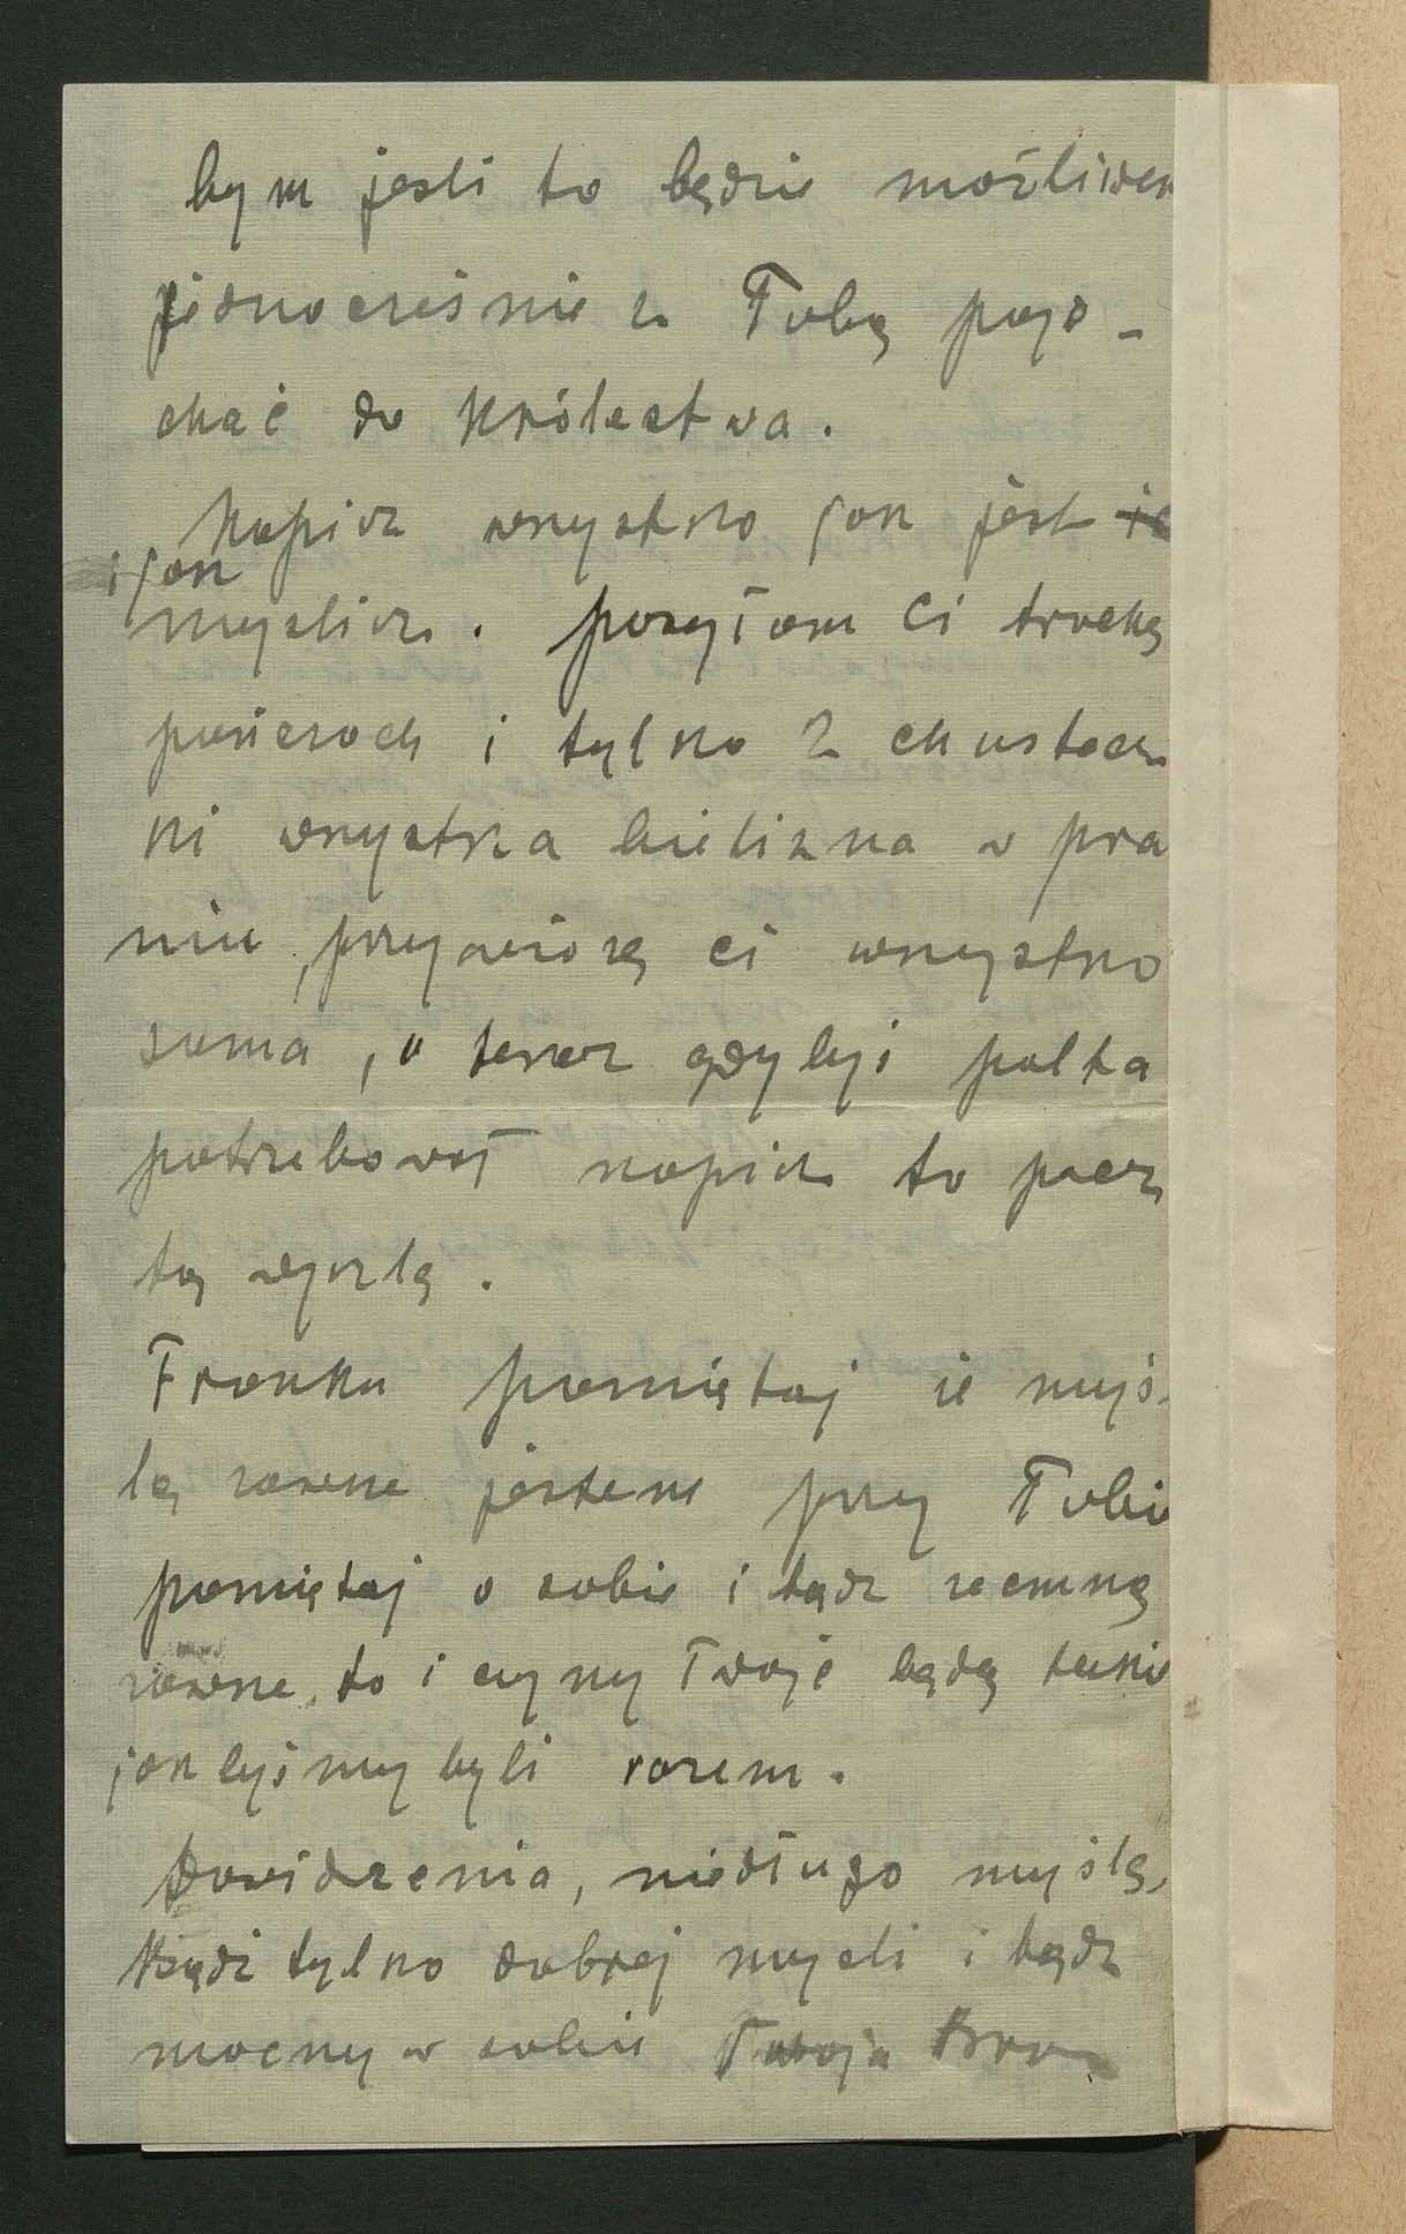 bym jeśli to będzie możliwem
jednocześnie z Tobą poje-
chać do Królestwa.
Napisz wszystko jak jest
i jak
myślisz. posyłam Ci trochę
pończoch i tylko 2 chustecz
ki wszystka bielizna w pra
niu, przywiozę ci wszystko
sama, a teraz gdybyś palta
potrzebował napisz to pocz
tą wyszlą.
Franku pamiętaj że myś-
lą zawsze jestem przy Tobie
pamiętaj o sobie i bądz zemną
zawsze, to i czyny Twoje będą takie
jak byśmy byli razem.
Dowidzenia, niedługo myślę,
Bądź tylko dobrej myśli i bądz
mocny w sobie Twoja Bro